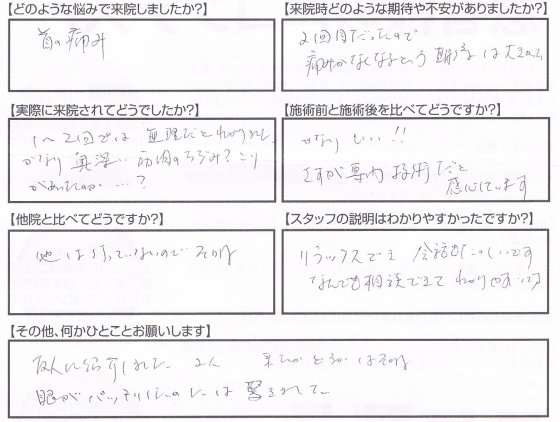 【どのような悩みで来院しましたか?】
首の痛み
【来院時どのような期待や不安がありましたか?】
2回目だったので
痛みがなくなるという期待は大
【実際に来院されてどうでしたか?】
1〜2回では無理だと
かなり奥深…筋肉のちぢみ?こり
があったのか…?
【施術前と施術後を比べてどうですか?】
かなりいい!!
さすが専門技術だと
感心しています
【他院と比べてどうですか?】
他は行っていないので
【スタッフの説明はわかりやすかったですか?】
リラックスでき会話もたのしいです
なんでも相談できてわかりやすいです
【その他、何かひとことお願いします】
友人に紹介しました 2人
眼がパッチリしたのには驚きました